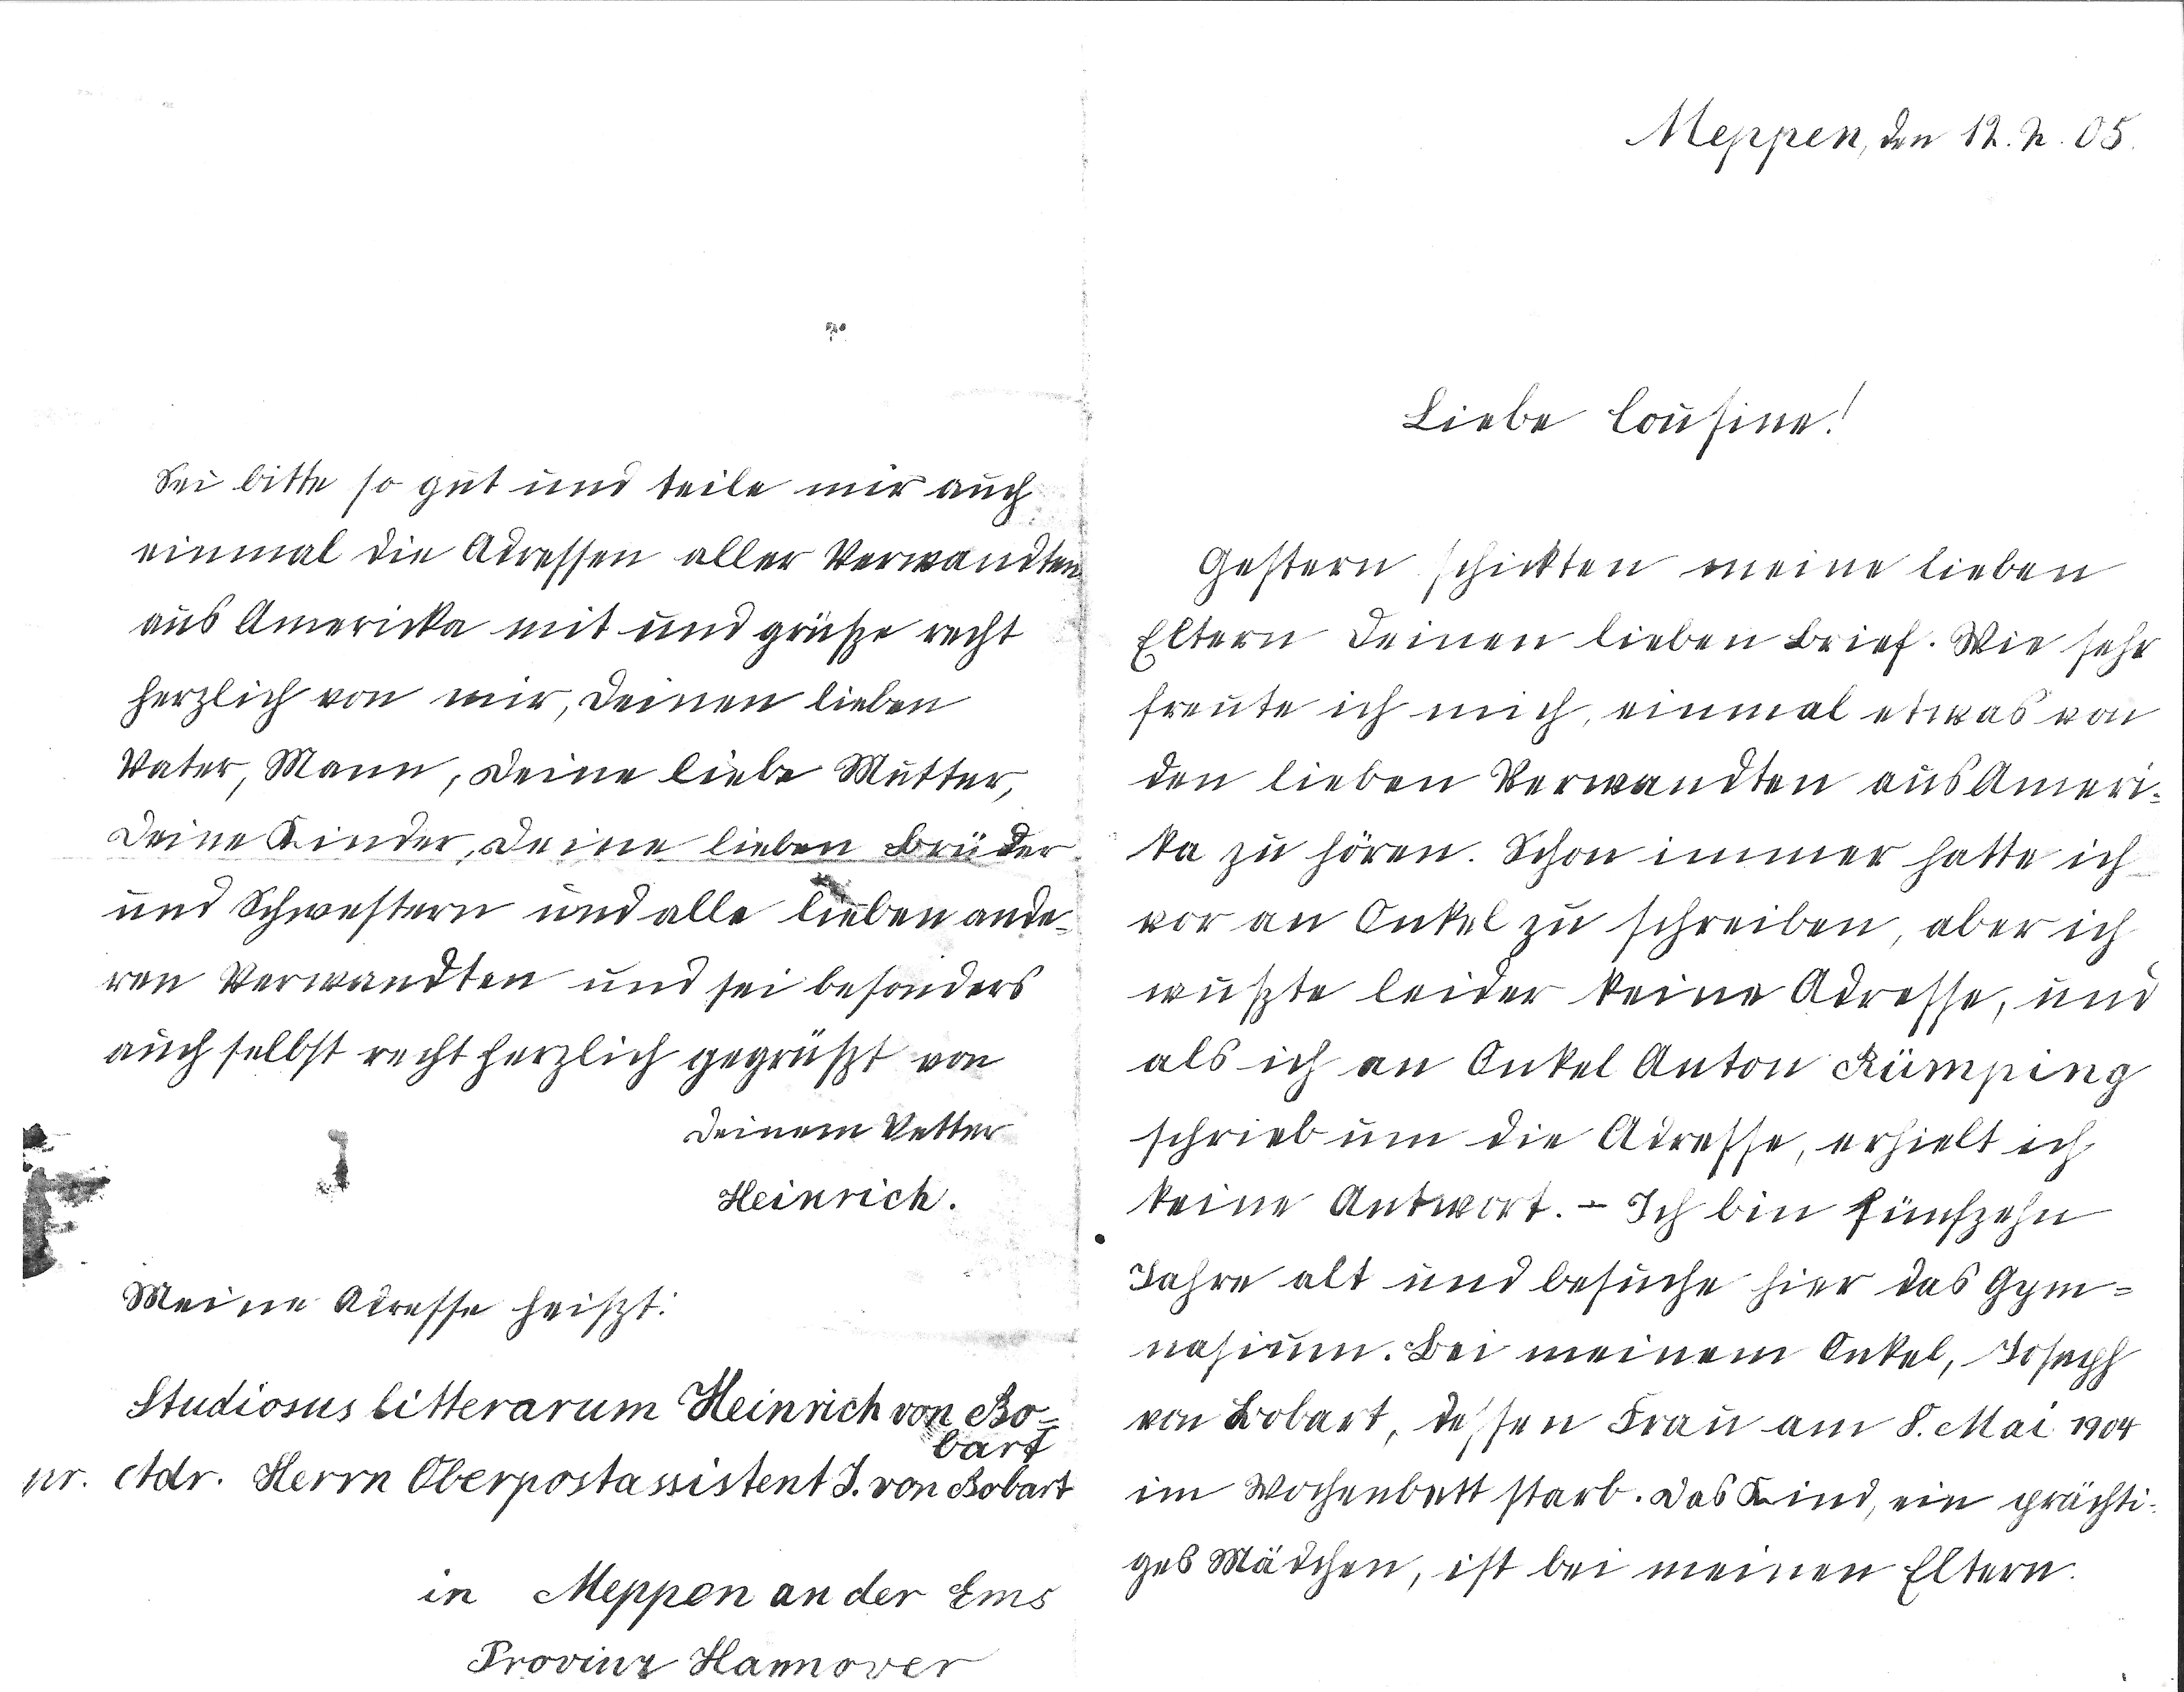 Meppen, den 12. 2. 05.
Liebe Cousine!
Gestern schickten meine lieben
Eltern Deinen lieben Brief. Wie sehr
freute ich mich, einmal etwas von
den lieben Verwandten aus Ameri-
ka zu hören. Schon immer hatte ich
vor an Onkel zu schreiben, aber ich
wußte leider keine Adresse, und
als ich an Onkel Anton Rümping
schrieb um die Adresse, erhielt ich
keine Antwort. - Ich bin fünfzehn
Jahre alt und besuche hier das Gym-
nasium. Bei meinem Onkel, Joseph
von Bobart, dessen Frau am 8. Mai 1904
im Wochenbett starb. Das Kind, ein prächti-
ges Mädchen, ist bei meinen Eltern.
Sei bitte so gut und teile mir auch
einmal die Adressen aller Verwandten
aus Americka mit und grüße recht
herzlich von mir, Deinen lieben
Vater, Mann, Deine liebe Mutter,
Deine Kinder, Deine lieben Brüder
und Schwestern und alle lieben ande-
ren Verwandten und sei besonders
auch selbst recht herzlich gegrüßt von
Deinem Vetter
Heinrich.
Meine Adresse heißt:
Studiosus litterarum Heinrich von Bo-
bart
pr. Adr. Herrn Oberpostassistent J. von Bobart
in Meppen an der Ems
Provinz Hannover